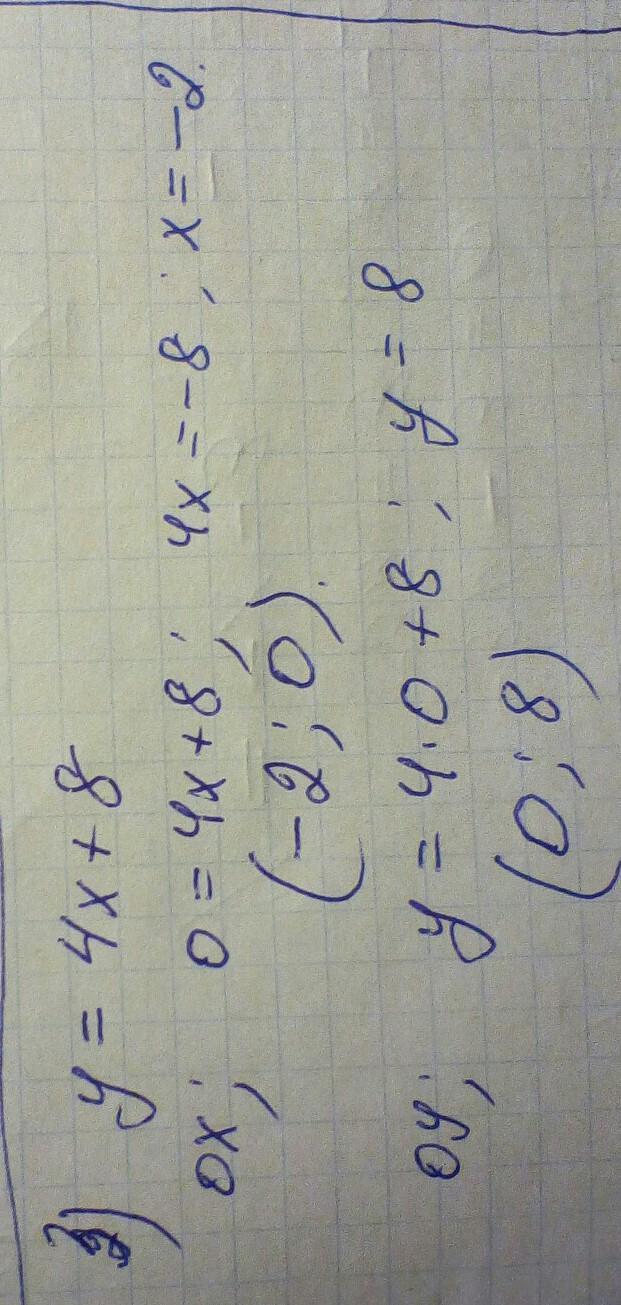 3) y = 4x + 8
ox; 0 = 4x + 8; 4x = -8; x = -2.
(-2; 0).
oy; y = 4·0 + 8; y = 8
(0; 8)